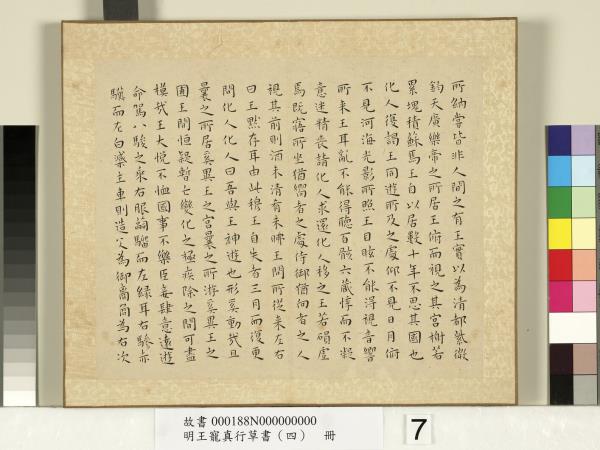 所納嘗皆非人間之有王實以為清都紫微
鈞天廣樂帝之所居王俯而視之其宮榭若
累塊積蘇焉王自以居數十年不思其國也
化人復謁王同遊所及之處仰不見日月俯
不見河海光影所照王目眩不能得視音響
所来王耳亂不能得聴百骸六藏悸而不凝
意迷精喪請化人求還化人移之王若磒虛
焉既寤所坐猶嚮者之處侍御猶向者之人
視其前則酒未清肴未昲王問所從来左右
曰王默存耳由此穆王自失者三月而復更
問化人化人曰吾與王神遊也形奚動哉且
曩之所居奚異王之宮曩之所游奚異王之
圃王間恒疑暫亡變化之極疾除之間可盡
模哉王大悅不恤國事不樂臣妾肆意遠遊
命駕八駿之乘右服騮而左綠耳右驂赤
驥而左白主車則造父為御為右次
故書 000188N000000000
明王寵真行草書（四） 冊
7